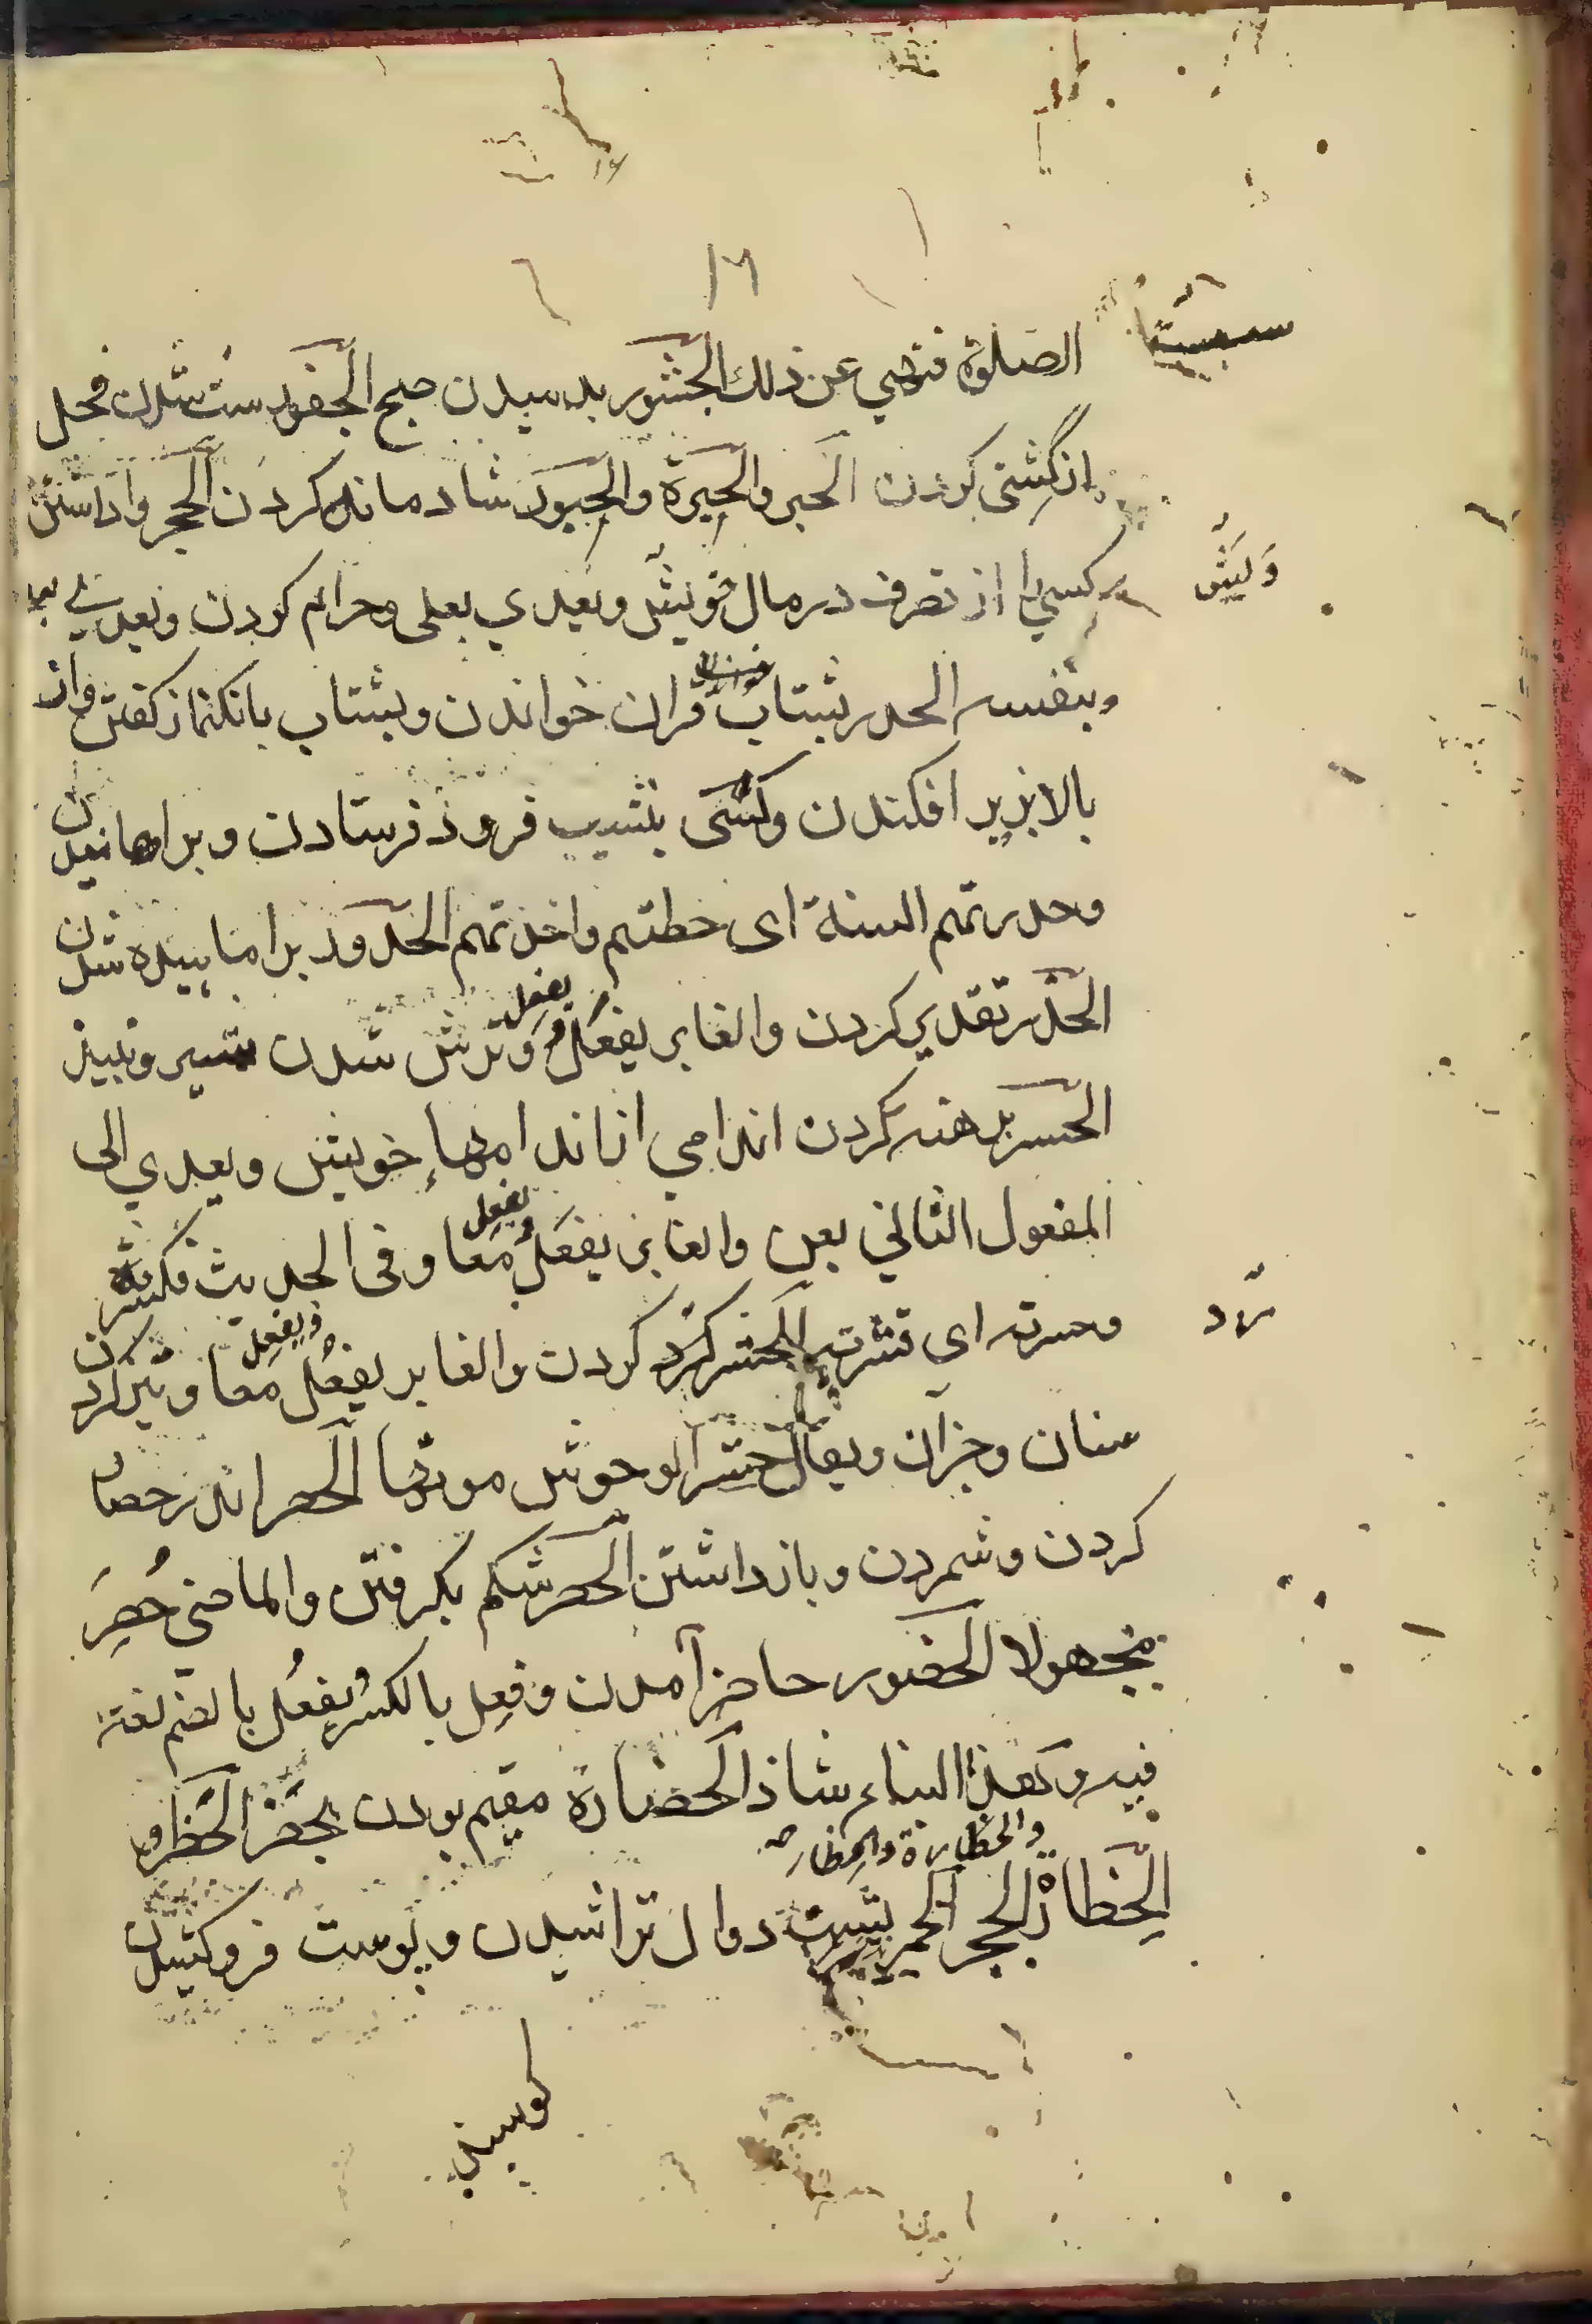 ١٦
الصلوة فنهي عن ذلك الجشور بدميدن صبح الجفور سست شدن فحل
از گشنی کردن الحبر والحبرة والحبور شادمانه کردن الحجر واداشتن
کسی را از تصرف در مال خویش ویعدي بعلی وحرام کردن
وبنفسه الحدر بشتاب قران خواندن وبشتاب بانک نماز کفتن واز
بالا بزیر افکندن وکشتی بنشیب فروذ فرستادن وبراماهانیدن
وحدرتهم السنة ای حطتهم واخذتهم الحدور براماسیده شدن
الحذر تقدیر کردن والغابر یفعل ویفعل وترش شدن شیر ونبیذ
الحسر برهنه کردن اندامي از اندامهاء خویش ویعدي الی
المفعول الثاني بعن والغابر یفعل ویفعل معا وفي الحدیث فکسرته
وحسرته ای قشرته الحشر کرد کردن والغابر یفعل ویفعل معا وتیز کردن
سنان وجزان ویقال حشر الوحوش موتها الحصر اندر حصار
کردن وشمردن وبازداشتن الحصر شکم بکرفتن والماضي حصر
مجهولا الحضور حاضر آمدن وفعل بالکسر یفعل بالضم لغة
فیه وهذا البناء شاذ الحضارة مقیم بودن بحضر الحظر و
والحظارة
الحظار الحجر الحمر دوال تراشیدن وپوست فروکشیدن